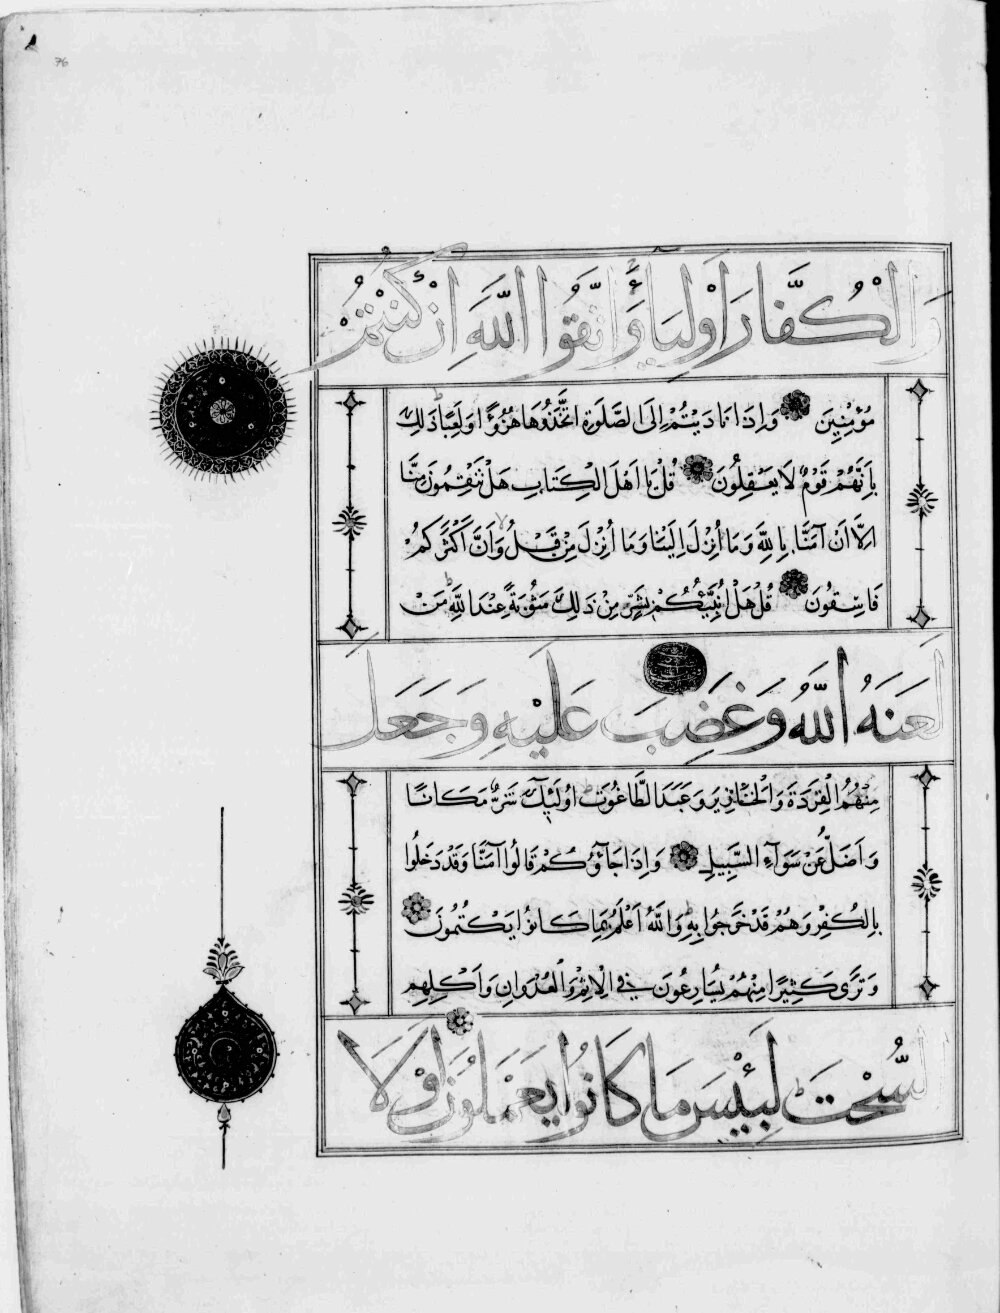 76
وَالْكُفَّارَ اَوْلِيَاءَ وَاتَّقُوا اللّٰهَ اِنْ كُنْتُمْ
مُؤْمِنِينَ وَاِذَا نَادَيْتُمْ اِلَى الصَّلَوةِ اتَّخَذُوهَا هُزُوًا وَلَعِبًا ذٰلِكَ
بِاَنَّهُمْ قَوْمٌ لَا يَعْقِلُونَ قُلْ يَا اَهْلَ الْكِتَابِ هَلْ تَنْقِمُونَ مِنَّا
اِلَّا اَنْ آمَنَّا بِاللّٰهِ وَمَا اُنْزِلَ اِلَيْنَا وَمَا اُنْزِلَ مِنْ قَبْلُ وَاَنَّ اَكْثَرَكُمْ
فَاسِقُونَ قُلْ هَلْ اُنَبِّئُكُمْ بِشَرٍّ مِنْ ذٰلِكَ مَثُوبَةً عِنْدَ اللّٰهِ مَنْ
لَعَنَهُ اللّٰهُ وَغَضِبَ عَلَيْهِ وَجَعَلَ
مِنْهُمُ الْقِرَدَةَ وَالْخَنَازِيرَ وَعَبَدَ الطَّاغُوتَ اُولٰئِكَ شَرٌّ مَكَانًا
وَاَضَلُّ عَنْ سَوَآءِ السَّبِيلِ وَاِذَا جَاؤُكُمْ قَالُوا آمَنَّا وَقَدْ دَخَلُوا
بِالْكُفْرِ وَهُمْ قَدْ خَرَجُوا بِهِ وَاللّٰهُ اَعْلَمُ بِمَا كَانُوا يَكْتُمُونَ
وَتَرٰى كَثِيرًا مِنْهُمْ يُسَارِعُونَ فِي الْاِثْمِ وَالْعُدْوَانِ وَاَكْلِهِمُ
السُّحْتَ لَبِئْسَ مَا كَانُوا يَعْمَلُونَ لَوْلَا